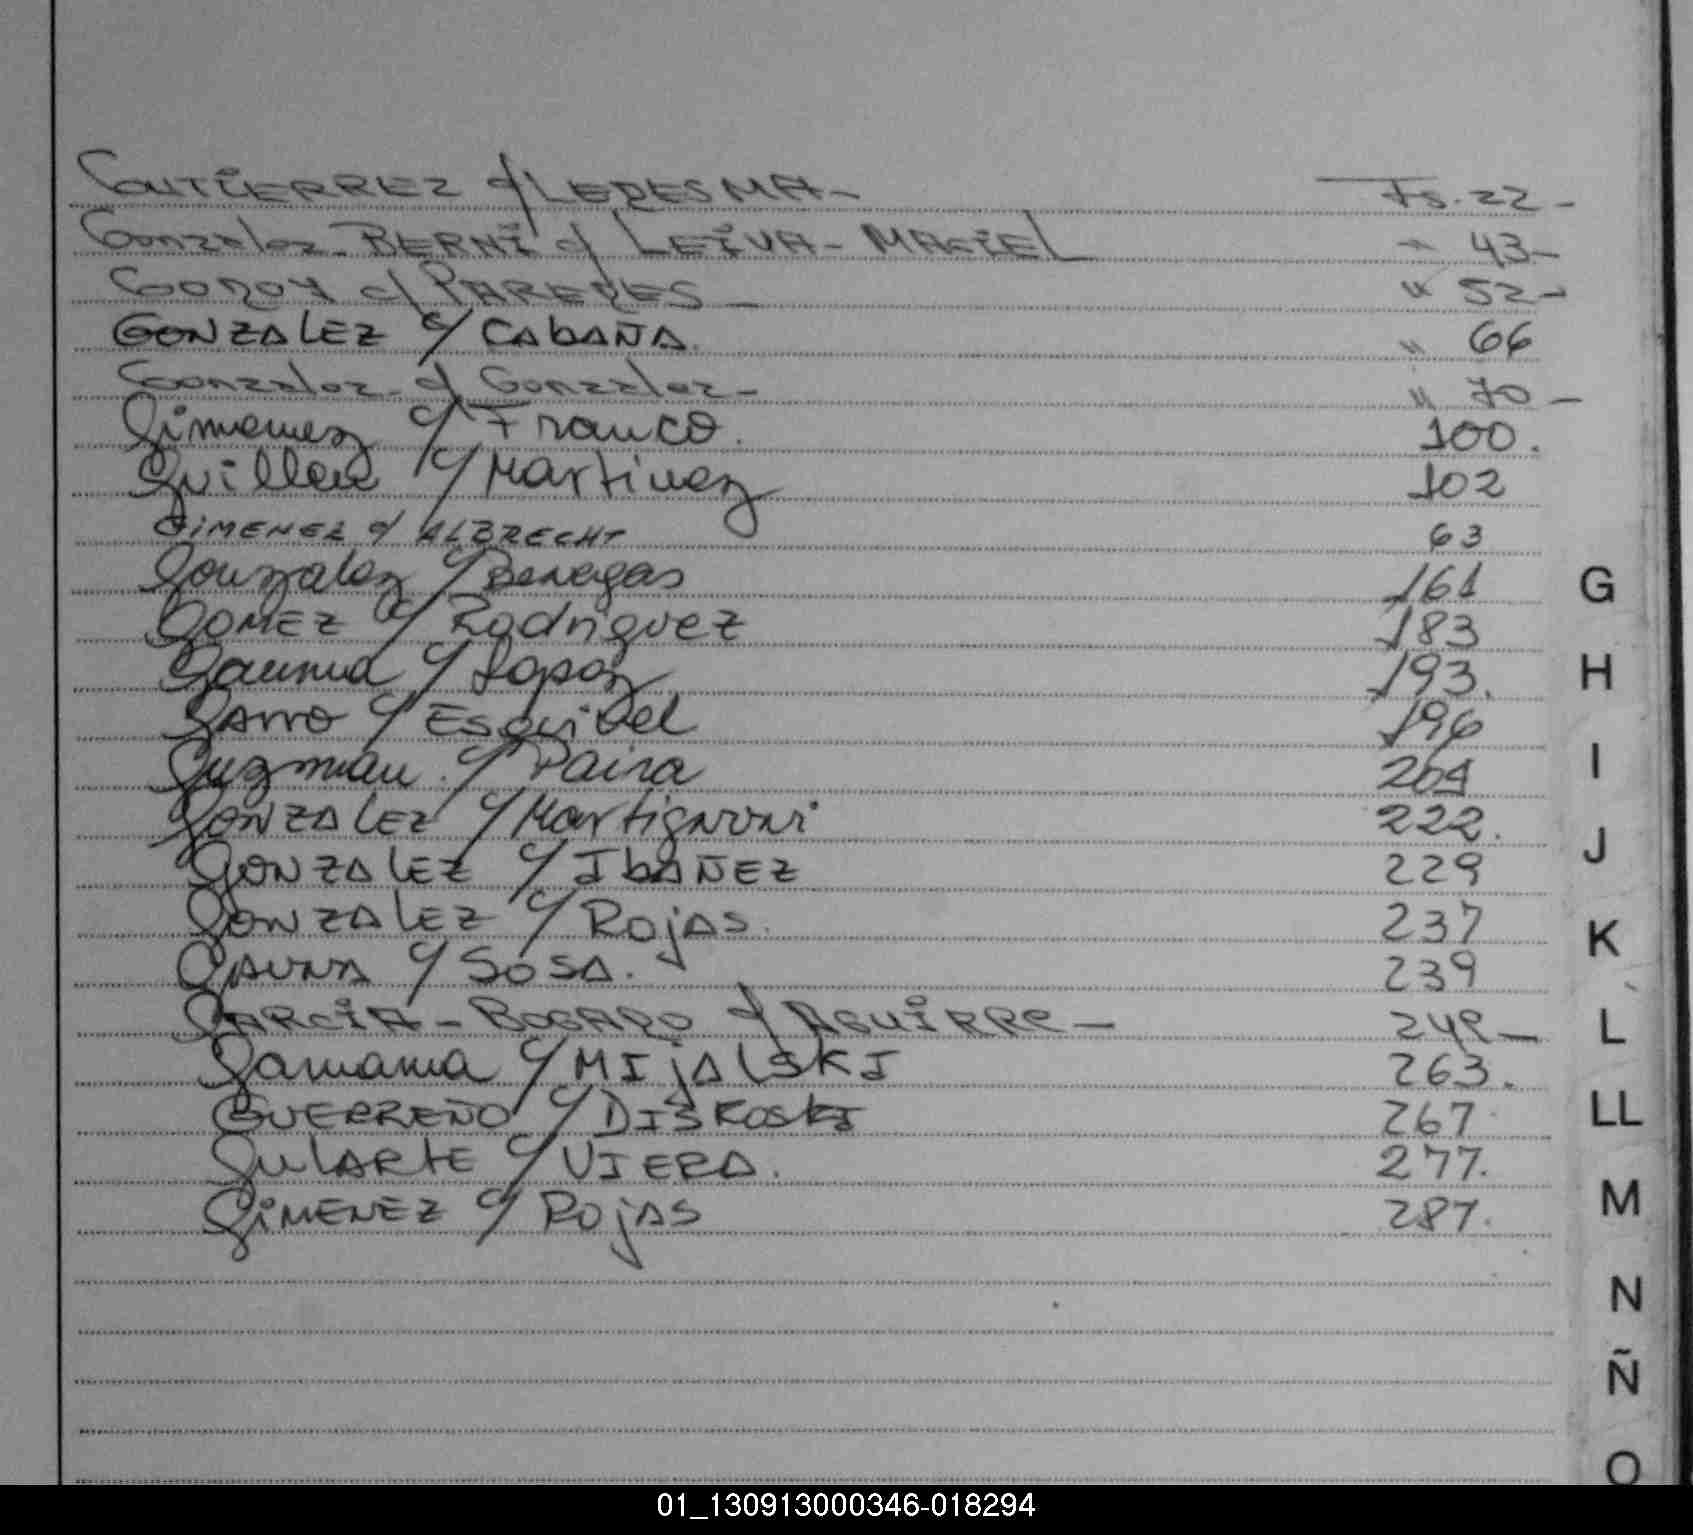 GUTIERREZ c/ LEDESMA- Fs. 22-
Gonzalez-BERNI c/ LEIVA-MACIEL " 43-
GODOY c/ PAREDES- " 52-
GONZALEZ c/ CABAÑA. " 66
Gonzalez- c/ Gonzalez- " 70-
Gimenez c/ Franco. 100.
Guillen c/ Martinez 102
GIMENEZ c/ ALBRECHT 63
Gonzalez c/ Benegas 161
GOMEZ c/ Rodriguez 183
Gauna c/ Lopez 193.
GARRO c/ Esquibel 196
Guzman c/ Paira 204
GONZALEZ c/ Martignoni 222.
GONZALEZ c/ IBAÑEZ 229
GONZALEZ c/ ROJAS. 237
GAUNA c/ SOSA. 239
GARCIA-BOGADO c/ AGUIRRE- 249-
c/ MIJALSKI 263.
GUERREÑO c/ 267
GULARTE c/ VIERA. 277.
GIMENEZ c/ ROJAS 287.
G
H
I
J
K
L
LL
M
N
Ñ
O
01_130913000346-018294